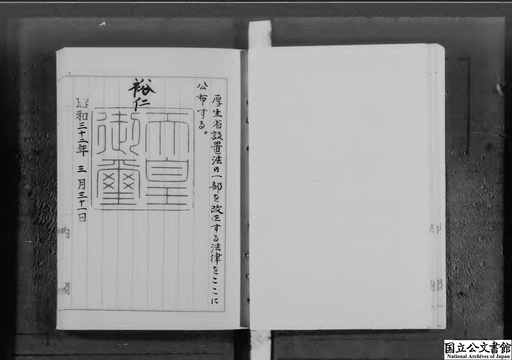 厚生省設置法の一部を改正する法律をここに
公布する。
裕仁
天皇
御璽
昭和三十三年三月三十一日
内
閣
国立公文書館
National Archives of Japan